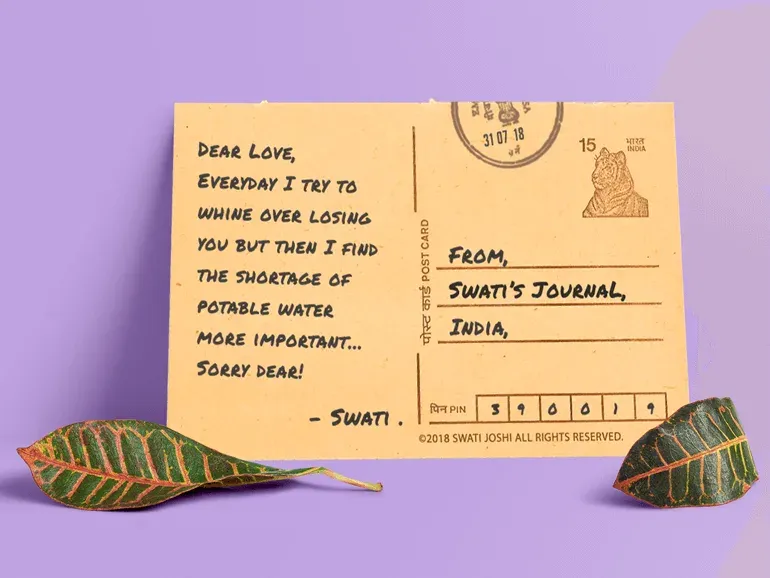 DEAR LOVE,
EVERYDAY I TRY TO
WHINE OVER LOSING
YOU BUT THEN I FIND
THE SHORTAGE OF
POTABLE WATER
MORE IMPORTANT...
SORRY DEAR!
- SWATI.
31 07 18
15
भारत
INDIA
पोस्ट कार्ड POST CARD
FROM,
SWATI'S JOURNAL,
INDIA,
पिन PIN 3 9 0 0 1 9
©2018 SWATI JOSHI ALL RIGHTS RESERVED.